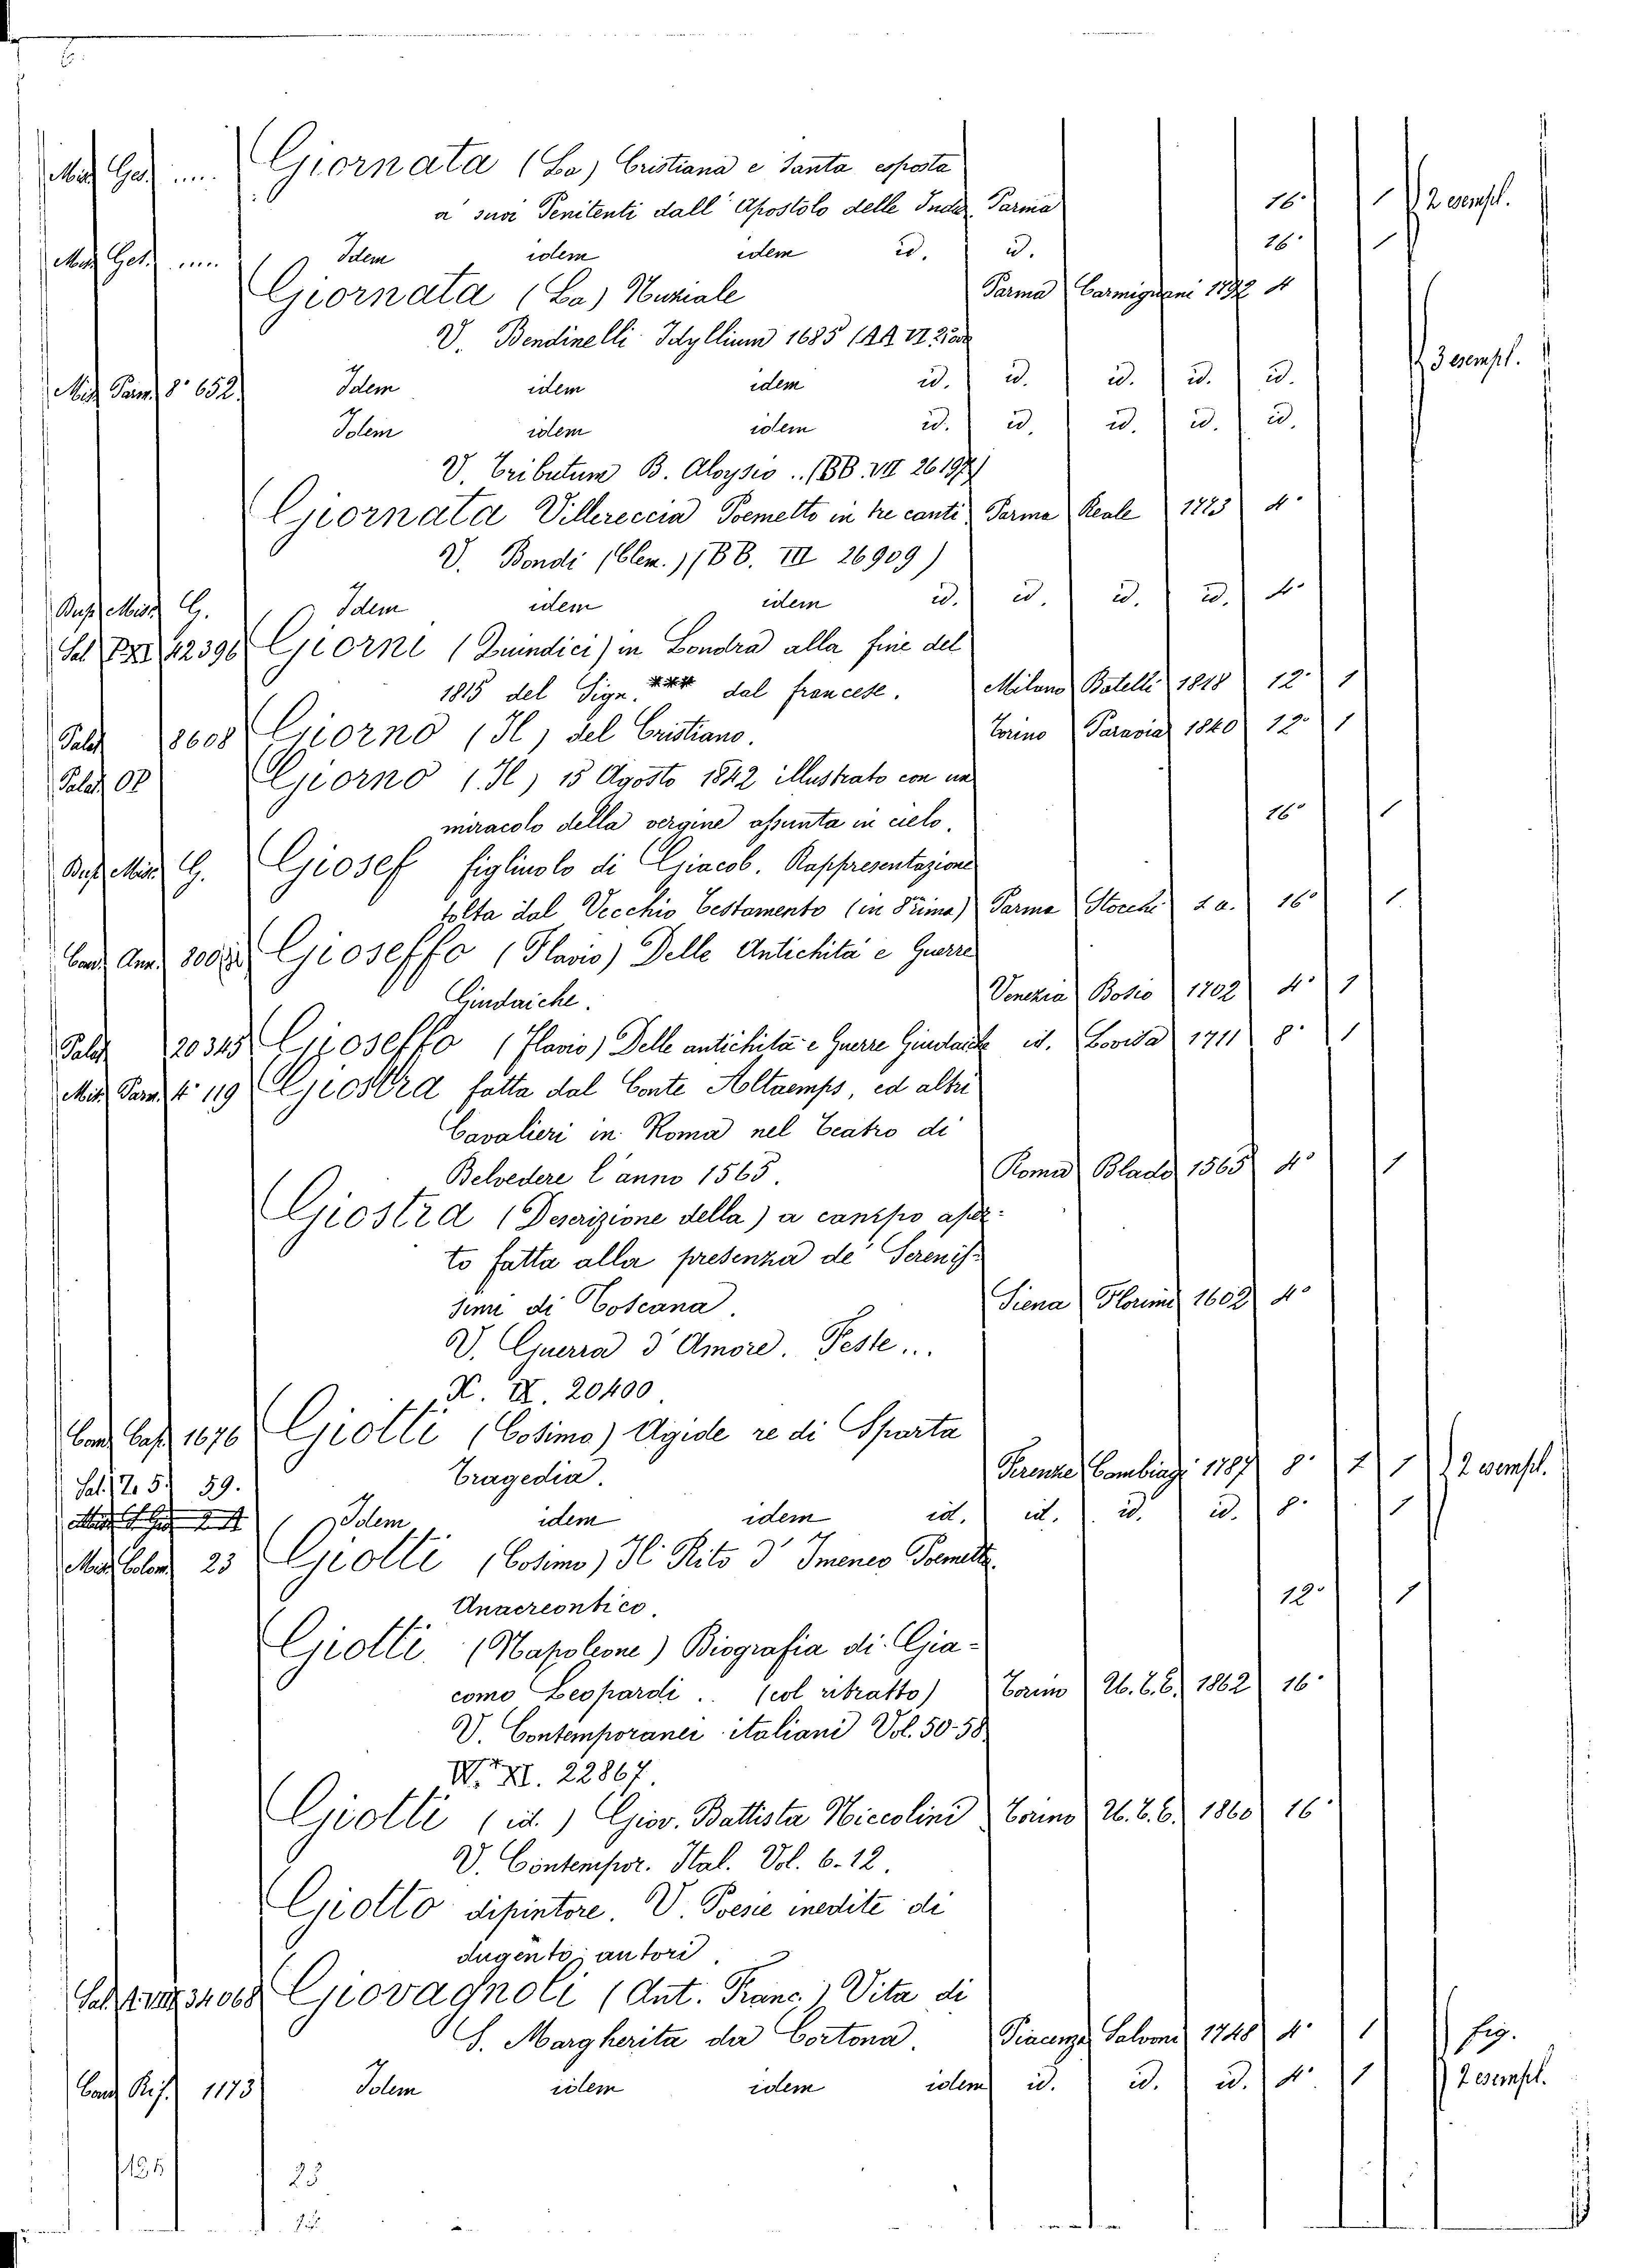 Giornata (La) Cristiana e Santa esposta
a' suoi Penitenti dall' Apostolo delle Indie. Parma 16. 1 2 esempl.
Idem idem idem id. id. 16. 1
Giornata (La) Nuziale Parma Carmignani 1792 4
V. Bendinelli Idyllium 1685
Misc. Parm. 8° 652. Idem idem idem id. id. id. id. id. 3 esempl.
Idem idem idem id. id. id. id. id.
V. Tributum B. Aloysio .. (BB. VII 26197)
Giornata Villereccia Poemetto in tre canti Parma Reale 1773 4°
V. Bondi (Clem.) (BB. III 26909)
G. Idem idem idem id. id. id. id. 4°
Giorni (Quindici) in Londra alla fine del
1815 del Sign. *** dal francese. Milano Batelli 1818 12° 1
Palat. 18608 Giorno (Il) del Cristiano. Torino Paravia 1840 12° 1
Palat. Giorno (Il) 15 Agosto 1842 illustrato con un
miracolo della vergine assunta in cielo. 16° 1
G. Giosef figliuolo di Giacob. Rappresentazione
tolta dal Vecchio Testamento (in Rima) Parma Storchi s. a. 16° 1
Gioseffo (Flavio) Delle Antichità e Guerre
Giudaiche. Venezia Bosio 1702 4° 1
Palat. 20345 Gioseffo (Flavio) Delle antichità e Guerre Giudaiche id. Lovisa 1711 8° 1
Misc. Parm. 4° 119 Giostra fatta dal Conte Altaemps, ed altri
Cavalieri in Roma nel Teatro di
Belvedere l'anno 1565. Roma Blado 1565 4° 1
Giostra (Descrizione della) a campo aper-
to fatta alla presenza de' Serenis-
simi di Toscana. Siena Florimi 1602 4°
V. Guerra d'Amore. Feste...
X. IX. 20400
1676 Giotti (Cosimo) Agide re di Sparta
59. Tragedia. Firenze Cambiagi 1787 8° 1 1 2 esempl.
Idem idem idem id. id. id. id. 8° 1
Misc. Colom. 23 Giotti (Cosimo) Il Rito d'Imeneo Poemetto
Anacreontico. 12° 1
Giotti (Napoleone) Biografia di Gia-
como Leopardi .. (col ritratto) Torino U.T.E. 1862 16°
V. Contemporanei italiani Vol. 50-58
W.* XI. 22867.
Giotti (id.) Giov. Battista Niccolini Torino U.T.E. 1860 16°
V. Contempor. Ital. Vol. 6-12.
Giotto dipintore. V. Poesie inedite di
dugento autori.
34068 Giovagnoli (Ant. Franc.) Vita di
S. Margherita da Cortona. Piacenza Salvoni 1748 4° 1 fig.
1173 Idem idem idem idem id. id. id. 4° 1 2 esempl.
25